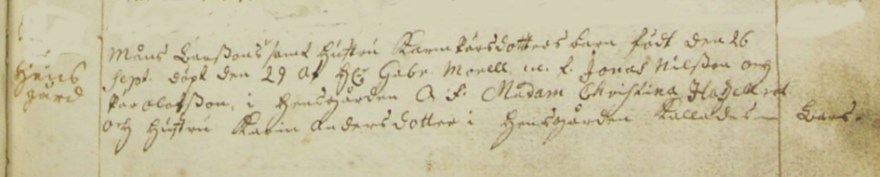 Håns
gård
Måns Larssons samt hustru Karin Larsdotters barn födt den 26
Sept. döpt den 29 af H Gabr. Morell, w. f. Jonas Nilsson og
Per olofsson, i Hensgården Q. f. Madam Christina
och hustru Karin Andersdotter i Hensgården Kallades Lars.